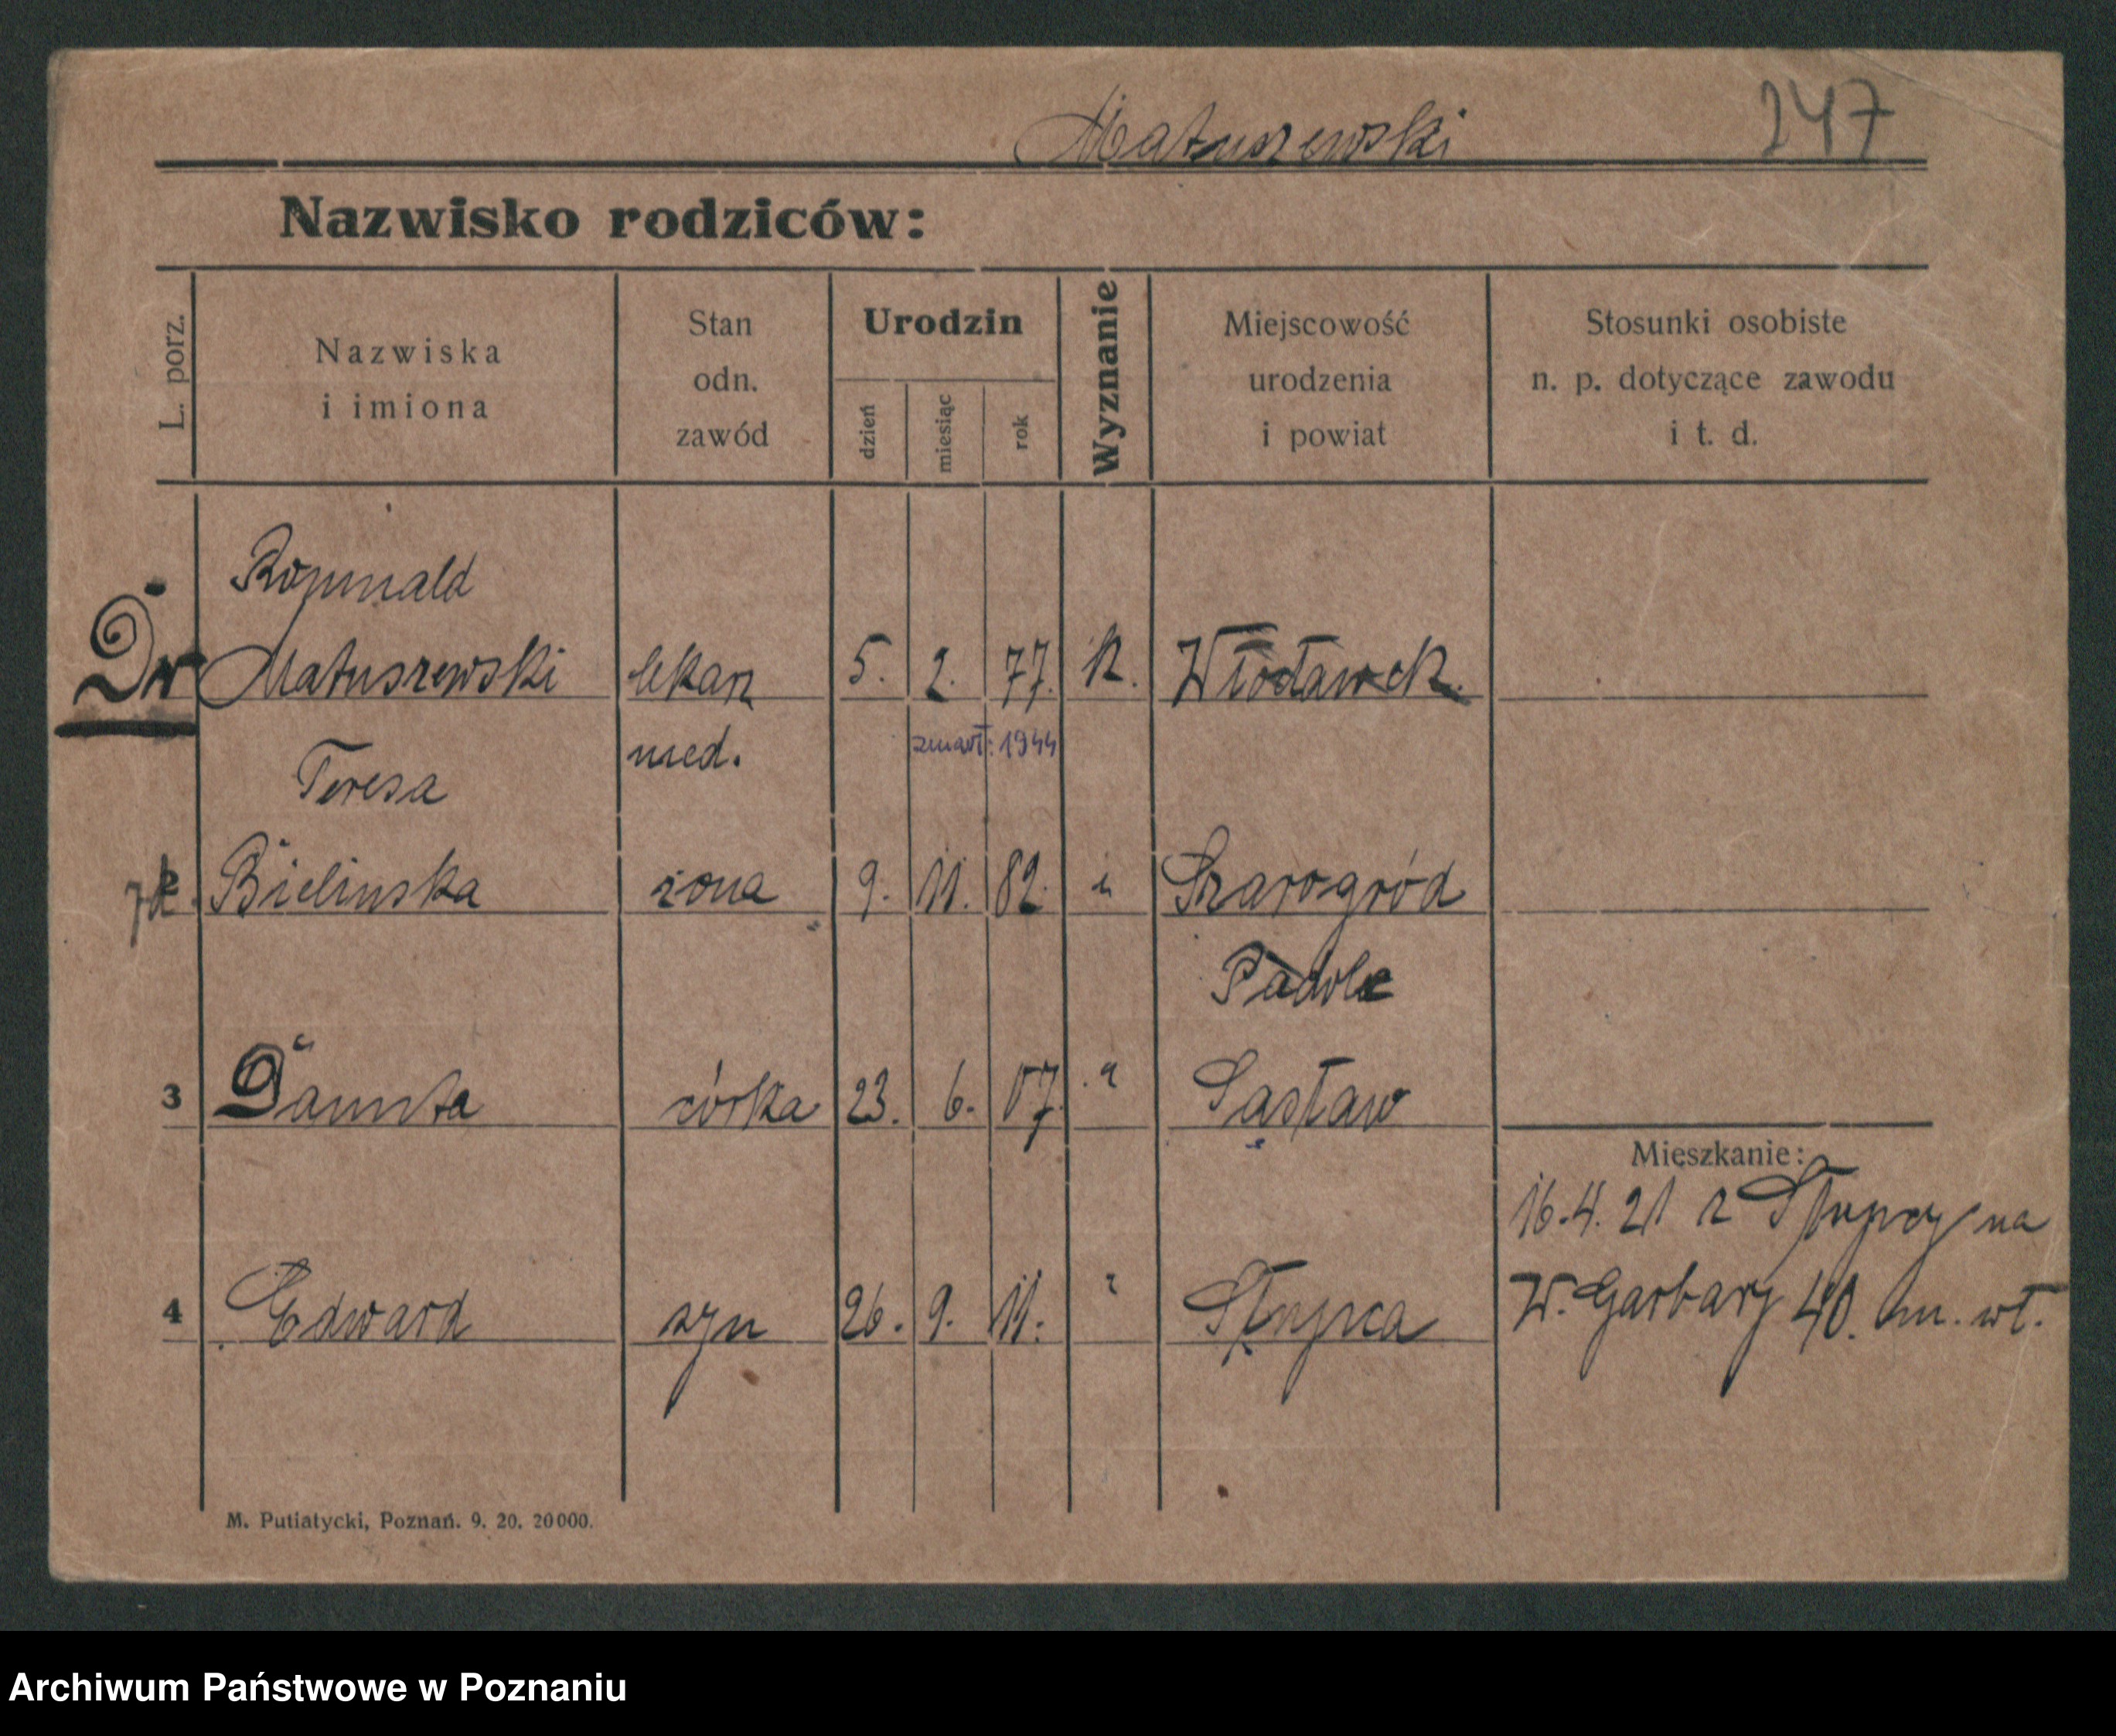 Matuszewski 247
Nazwisko rodziców:
L. porz.
Nazwiska
i imiona
Stan
odn.
zawód
Urodzin
dzień
miesiąc
rok
Wyznanie
Miejscowość
urodzenia
i powiat
Stosunki osobiste
n. p. dotyczące zawodu
i t. d.
Romuald
Dr Matuszewski lekarz 5. 2. 77. k. Włocławek.
med. zmarł: 1944
Teresa
2 Bielinska żona 9. 11. 82. " Szarogród
Padole
3 Danuta córka 23. 6. 07. " Sasław
Mieszkanie:
16.4.21 z Słupcy na
4 Edward syn 26. 9. 11. " Słupca W. Garbary 40. m. wł.
M. Putiatycki, Poznań. 9. 20. 20000.
Archiwum Państwowe w Poznaniu